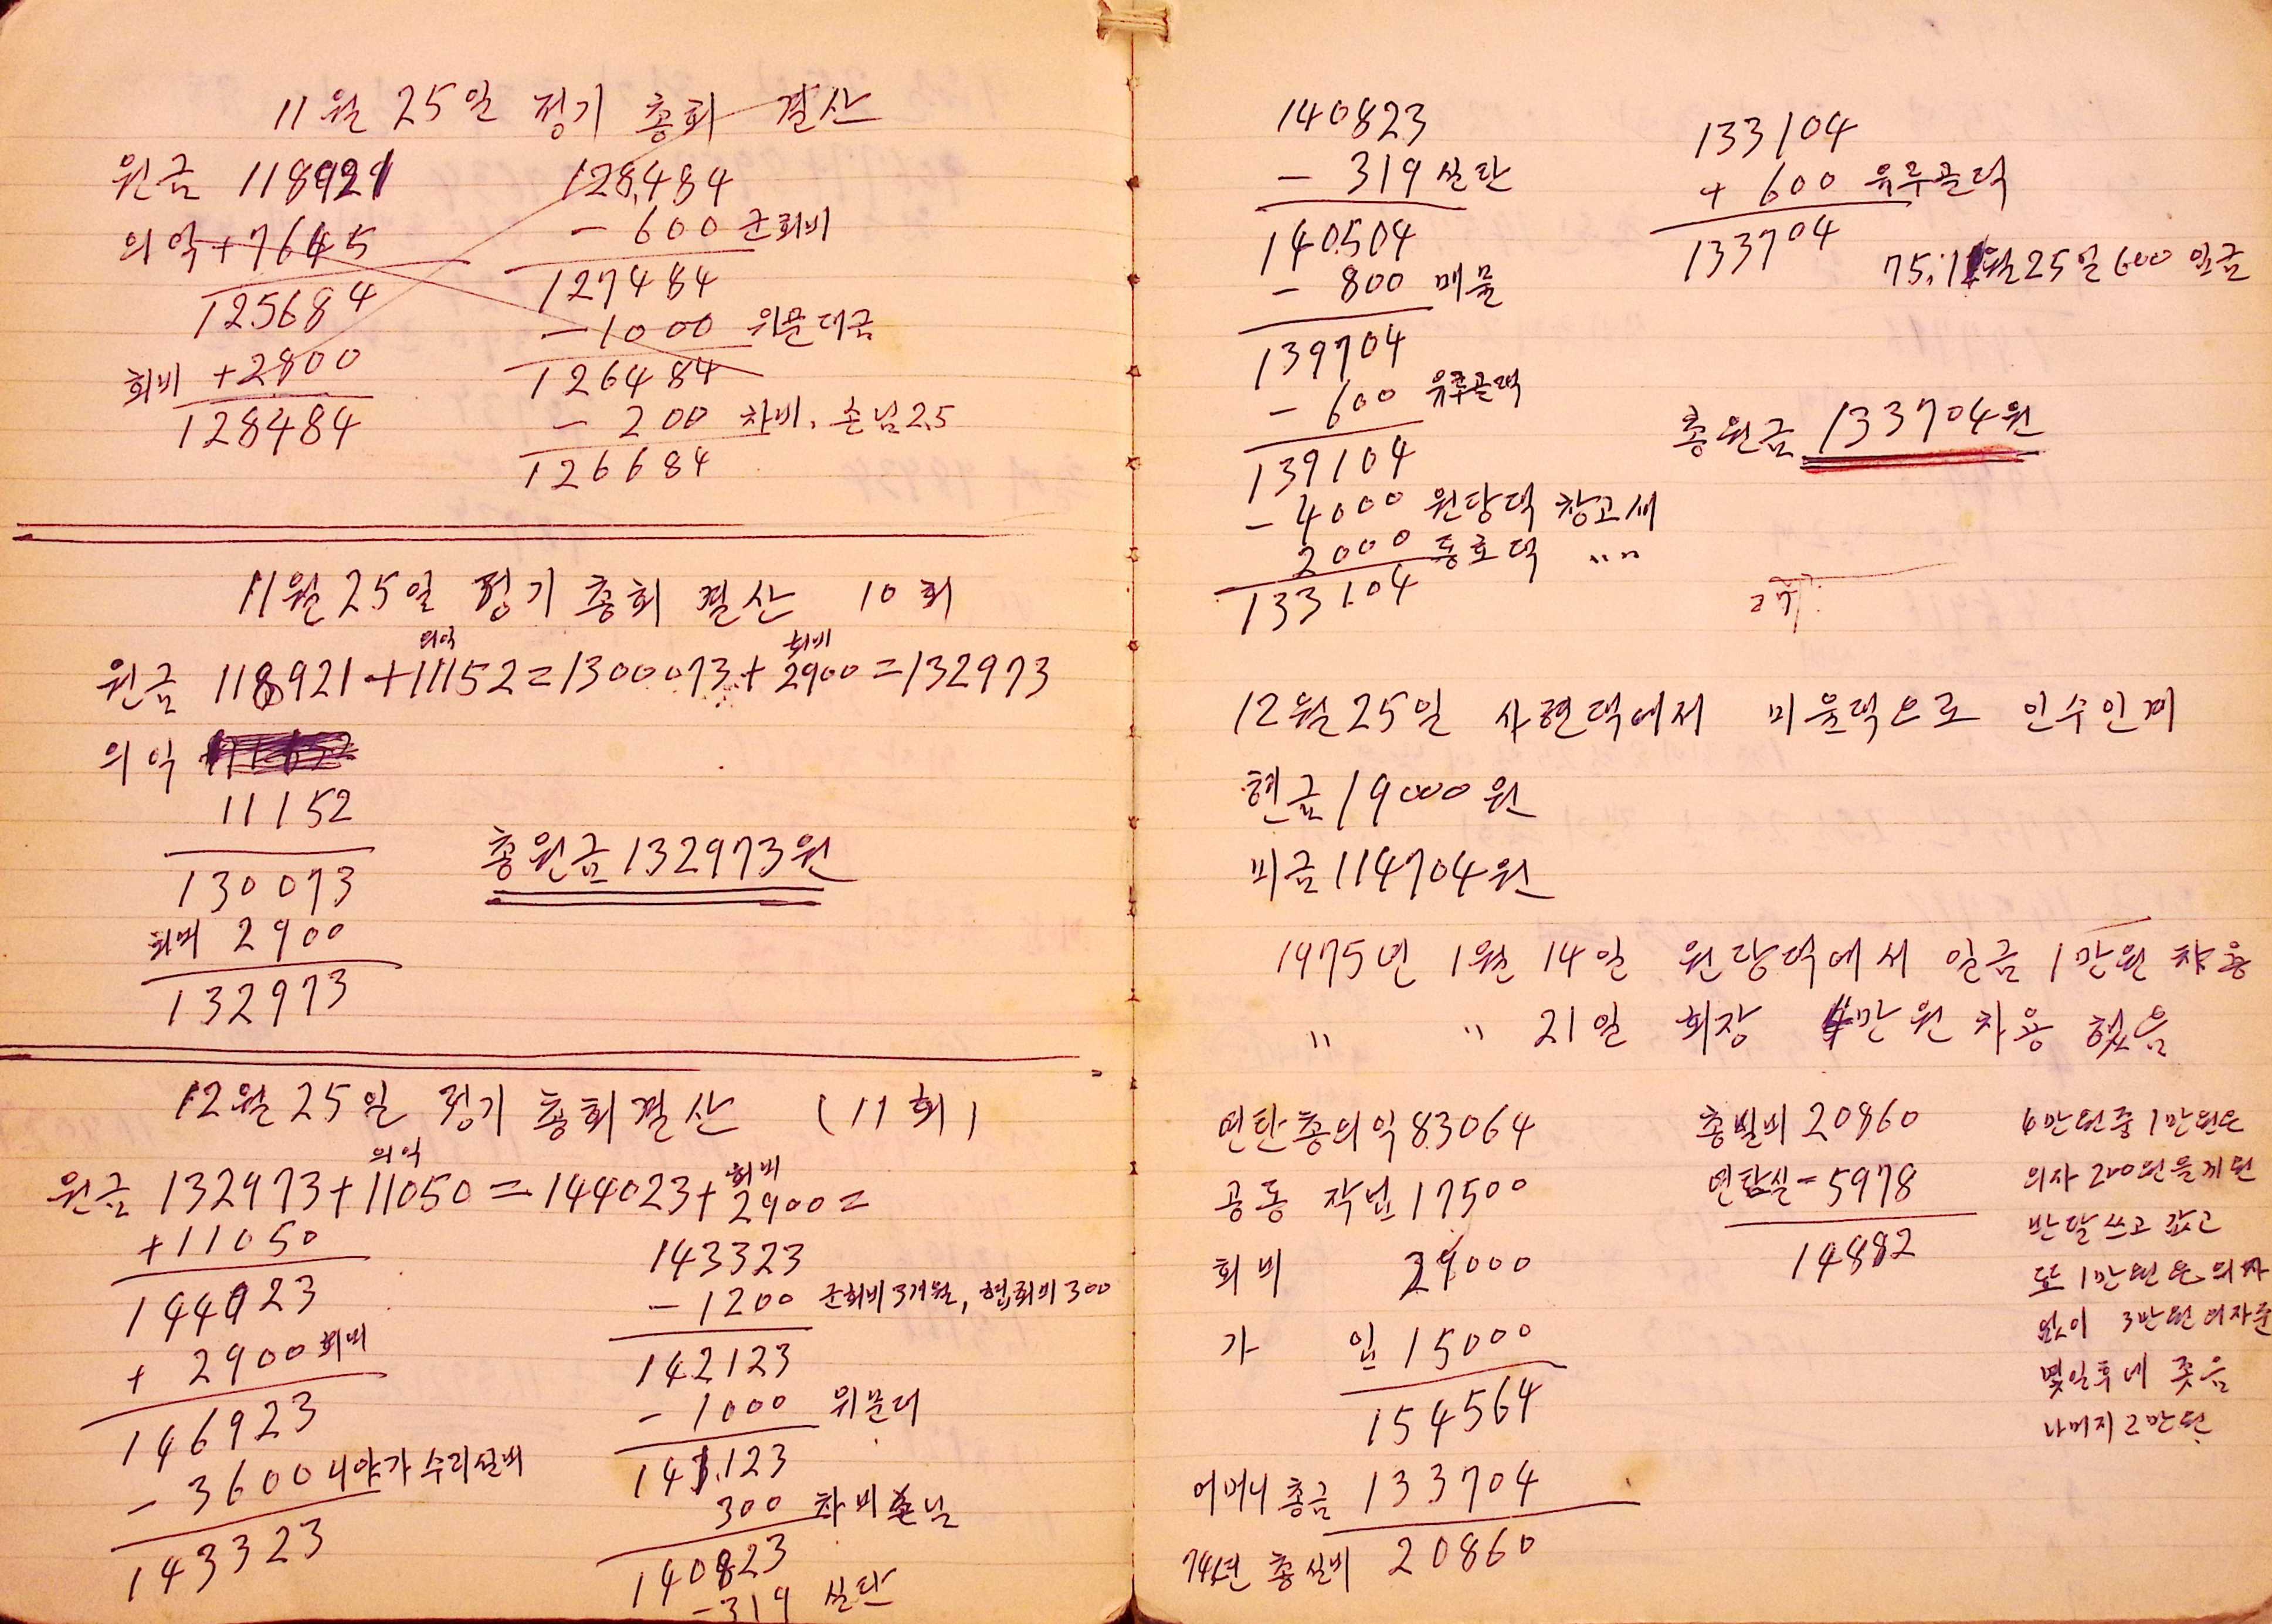 11월 25일 정기 총회 결산
원금 118921
의익 +7645
125684
회비 +2800
128484
128,484
- 600 군회비
127484
-1000 위문대금
126484
- 200 차비, 손님2,5
126684
11월 25일 정기 총회 결산 10회
의익 회비
원금 118921+11152=1300073+2900=132973
의익
11152
130073
회비 2900
132973
총원금 132973원
12월 25일 정기 총회결산 (11회)
의익 회비
원금 132973+11050=144023+2900=
+11050
144023
+ 2900 회비
146923
- 3600 니야가 수리실비
143323
143323
- 1200 군회비 3개월, 협회비 300
142123
- 1000 위문대
141,123
300 차비 손님
140823
-319 실탄
140823
- 319 실탄
140504
- 800 매물
139704
- 600 유루골댁
139104
- 4000 원당댁 창고세
2000 동호댁 〃〃
133104
133104
+ 600 유루골댁
133704
75.11월25일 600 입금
총원금 133704원
12월 25일 사현댁에서 미울댁으로 인수인계
현금 19000원
미금 114704원
1975년 1월 14일 원당댁에서 일금 1만원 차용
〃 〃 21일 회장 4만원 차용 했음
연탄총의익 83064
공동 작업 17500
회비 29000
가입 15000
154564
어머니 총금 133704
74년 총실비 20860
총빌비 20860
연탄실-5978
14882
4만원중 1만원은
의자 200원을끼원
반달쓰고 갚고
또 1만원은 의자
없이 3만원 여자준
몇일후에 줏음
나머지 2만원